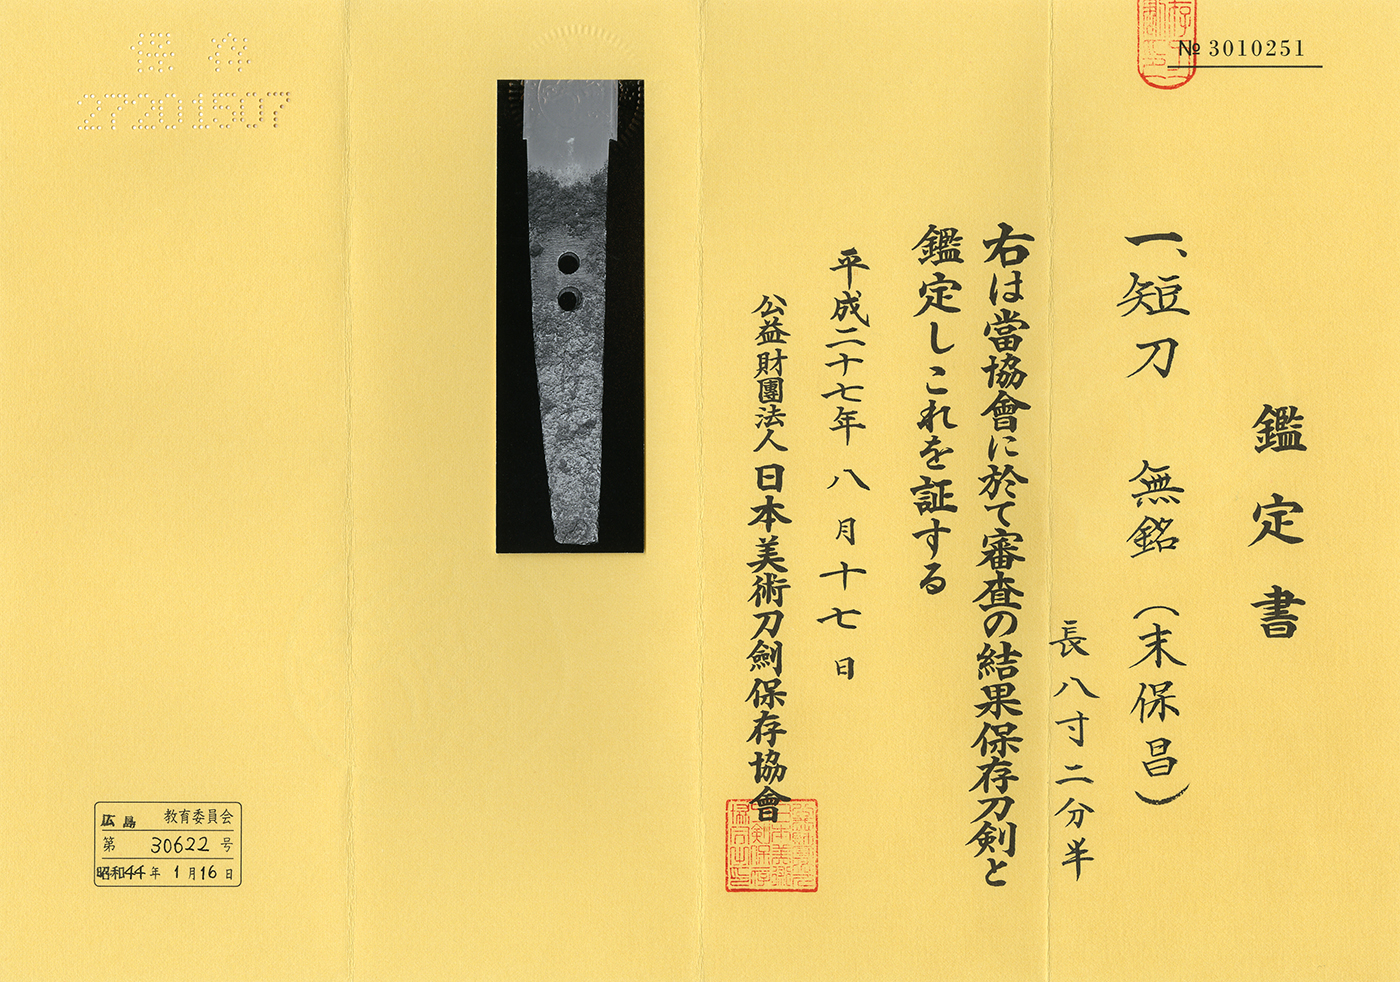 № 3010251
鑑定書
一、短刀 無銘(末保昌)
長八寸二分半
右は當協會に於て審査の結果保存刀剣と
鑑定しこれを証する
平成二十七年八月十七日
公益財團法人日本美術刀劍保存協會
保存
27201507
広島 教育委員会
第 30622 号
昭和44年 1月16日